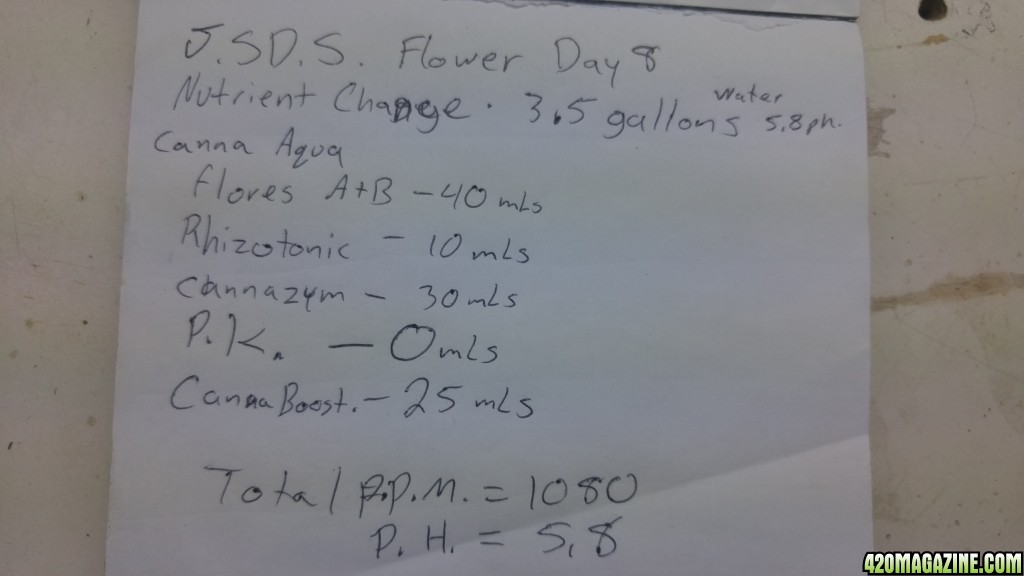 J.SD.S. Flower Day 8
Nutrient Change. 3.5 gallons water 5.8 ph.
Canna Aqua
flores A+B - 40 mLs
Rhizotonic - 10 mLs
Cannazym - 30 mLs
P.K. - 0 mLs
CannaBoost. - 25 mLs
Total P.P.M. = 1080
P.H. = 5.8
420MAGAZINE.COM